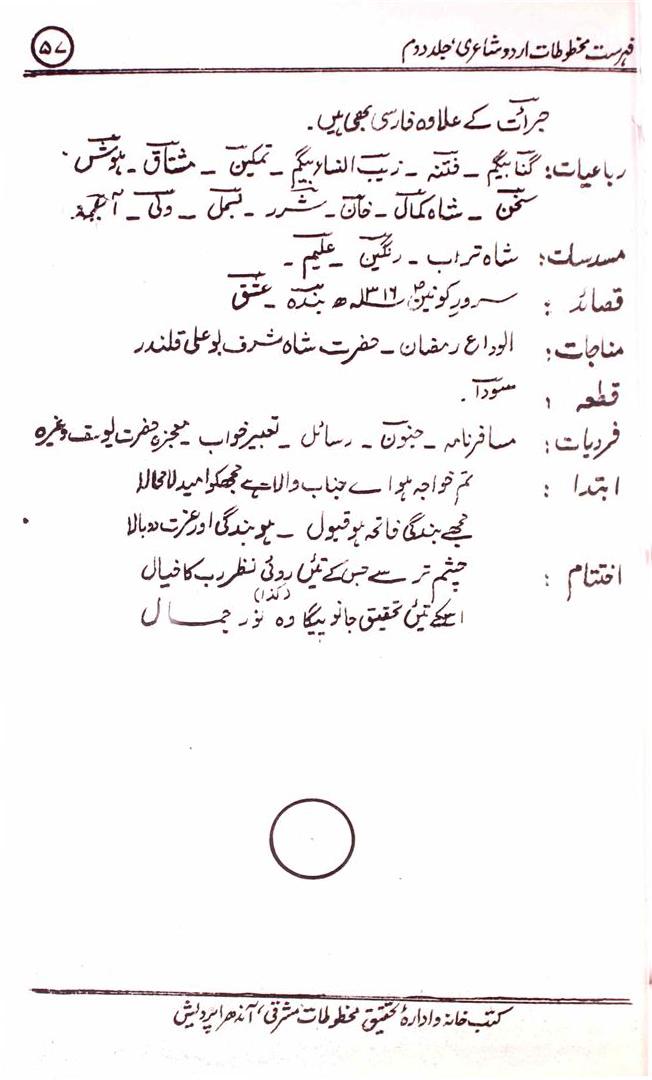 فہرست مخطوطات اردو شاعری، جلد دوم ۵۷
جرأت کے علاوہ فارسی بھی ہیں۔
رباعیات: گنا بیگم ۔ فتنہ ۔ زیب النساء بیگم ۔ تمکین ۔ مشتاق ۔ ہوش ۔
سخن ۔ شاہ کمال ۔ خان ۔ شرر ۔ بسمل ۔ ولی ۔
مسدسات: شاہ تراب ۔ رنگین ۔ علیم ۔
قصائد : سرور کونینؐ ۱۳۱۶ھ بندہ ۔ عشق
مناجات: الوداع رمضان ۔ حضرت شاہ شرف بو علی قلندر
قطعہ : سودا ۔
فردیات: مسافر نامہ ۔ جنون ۔ رسائل ۔ تعبیر خواب ۔ معجزہ حضرت یوسف وغیرہ
ابتدا : تم خواجہ ہو اے جناب والا ہے مجھکو امید لا محالا
مجھے بندگی فاتحہ ہو قبول ۔ ہو بندگی اور عزت دوبالا
اختتام : چشم تر سے جس کے تئیں روئی نظر رب کا خیال
(کذا)
اسکے تئیں تحقیق جانو وہ نور جمال
کتب خانہ و ادارۂ تحقیق مخطوطات مشرقی، آندھرا پردیش